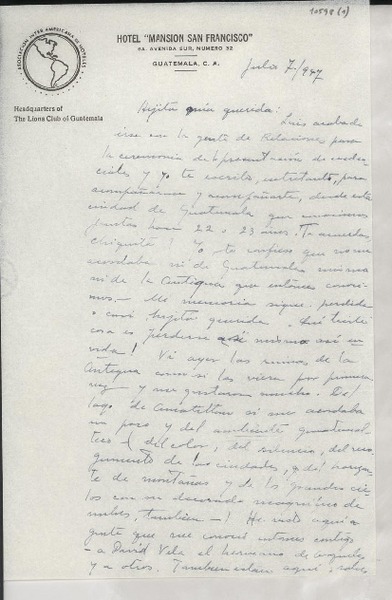 10598 (1)
ASOCIACION INTER AMERICANA DE HOTELES
HOTEL "MANSION SAN FRANCISCO"
6A. AVENIDA SUR, NUMERO 32
GUATEMALA, C. A.
Julio 7/947
Headquarters of
The Lions Club of Guatemala
Hijita mía querida: Luis acaba de
irse con la gente de Relaciones para
la ceremonia de la presentación de creden-
ciales y yo te escribo, entretanto, para
acompañarme y acompañarte, desde esta
ciudad de Guatemala que conocimos
juntas hace 22 o 23 años. Te acuerdas
chiquita? Yo te confieso que no me
acordaba ni de Guatemala misma
ni de la Antigua que entonces conoci-
mos. Mi memoria sigue perdida
o casi hijita querida. Qué triste
cosa es perderse a sí misma así en
vida! Vi ayer las ruinas de la
Antigua como si las viera por primera
vez y me gustaron mucho. Del
lago de Amatitlán sí me acordaba
un poco y del ambiente guatemal-
teco (del color, del silencio, del reco-
gimiento de las ciudades, y del
de montañas y de los grandes cie-
los con su decorado de
nubes, también—! He visto aquí a
gente que me conoció entonces
a David Vela el hermano de
y a otros. También están aquí,